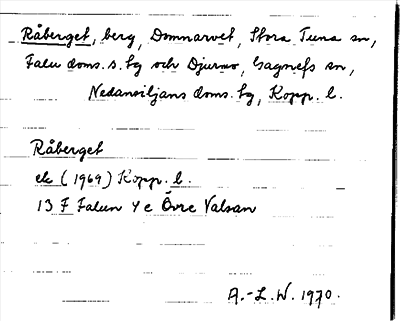 Råberget, berg, Domnarvet, Stora Tuna sn,
Falu doms. s. tg och Djurmo, Gagnefs sn,
Nedansiljans doms. tg, Kopp. l.
Råberget
ek (1969) Kopp. l.
13 F Falun 4 e Övre Valsan
A.-L.W. 1970.